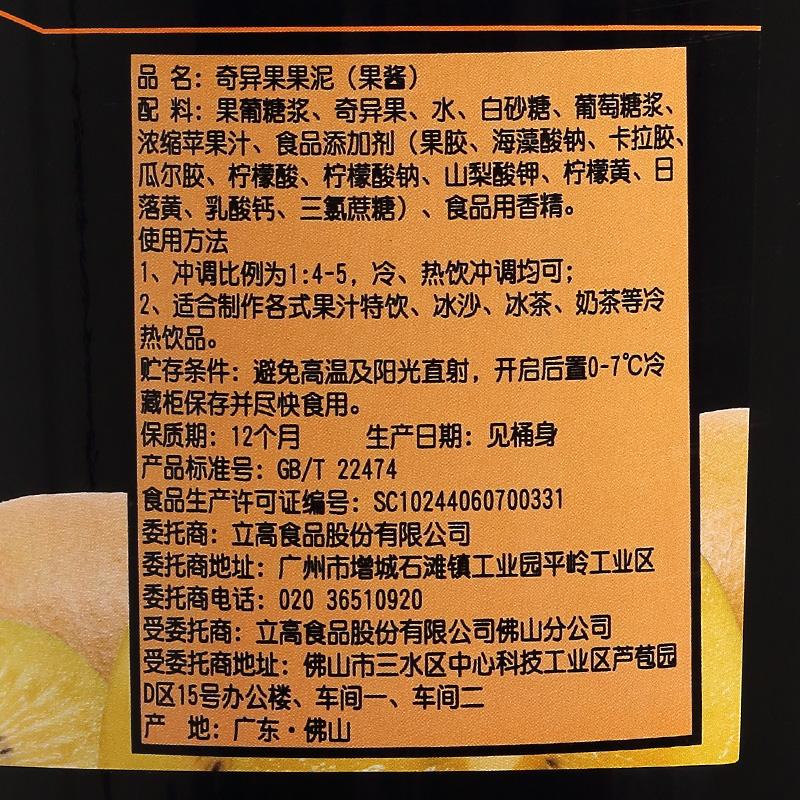 品 名：奇异果果泥（果酱）
配 料：果葡糖浆、奇异果、水、白砂糖、葡萄糖浆、
浓缩苹果汁、食品添加剂（果胶、海藻酸钠、卡拉胶、
瓜尔胶、柠檬酸、柠檬酸钠、山梨酸钾、柠檬黄、日
落黄、乳酸钙、三氯蔗糖）、食品用香精。
使用方法
1、冲调比例为1:4-5，冷、热饮冲调均可；
2、适合制作各式果汁特饮、冰沙、冰茶、奶茶等冷
热饮品。
贮存条件：避免高温及阳光直射，开启后置0-7℃冷
藏柜保存并尽快食用。
保质期：12个月 生产日期：见桶身
产品标准号：GB/T 22474
食品生产许可证编号：SC10244060700331
委托商：立高食品股份有限公司
委托商地址：广州市增城石滩镇工业园平岭工业区
委托商电话：020 36510920
受委托商：立高食品股份有限公司佛山分公司
受委托商地址：佛山市三水区中心科技工业区芦苞园
D区15号办公楼、车间一、车间二
产 地：广东·佛山